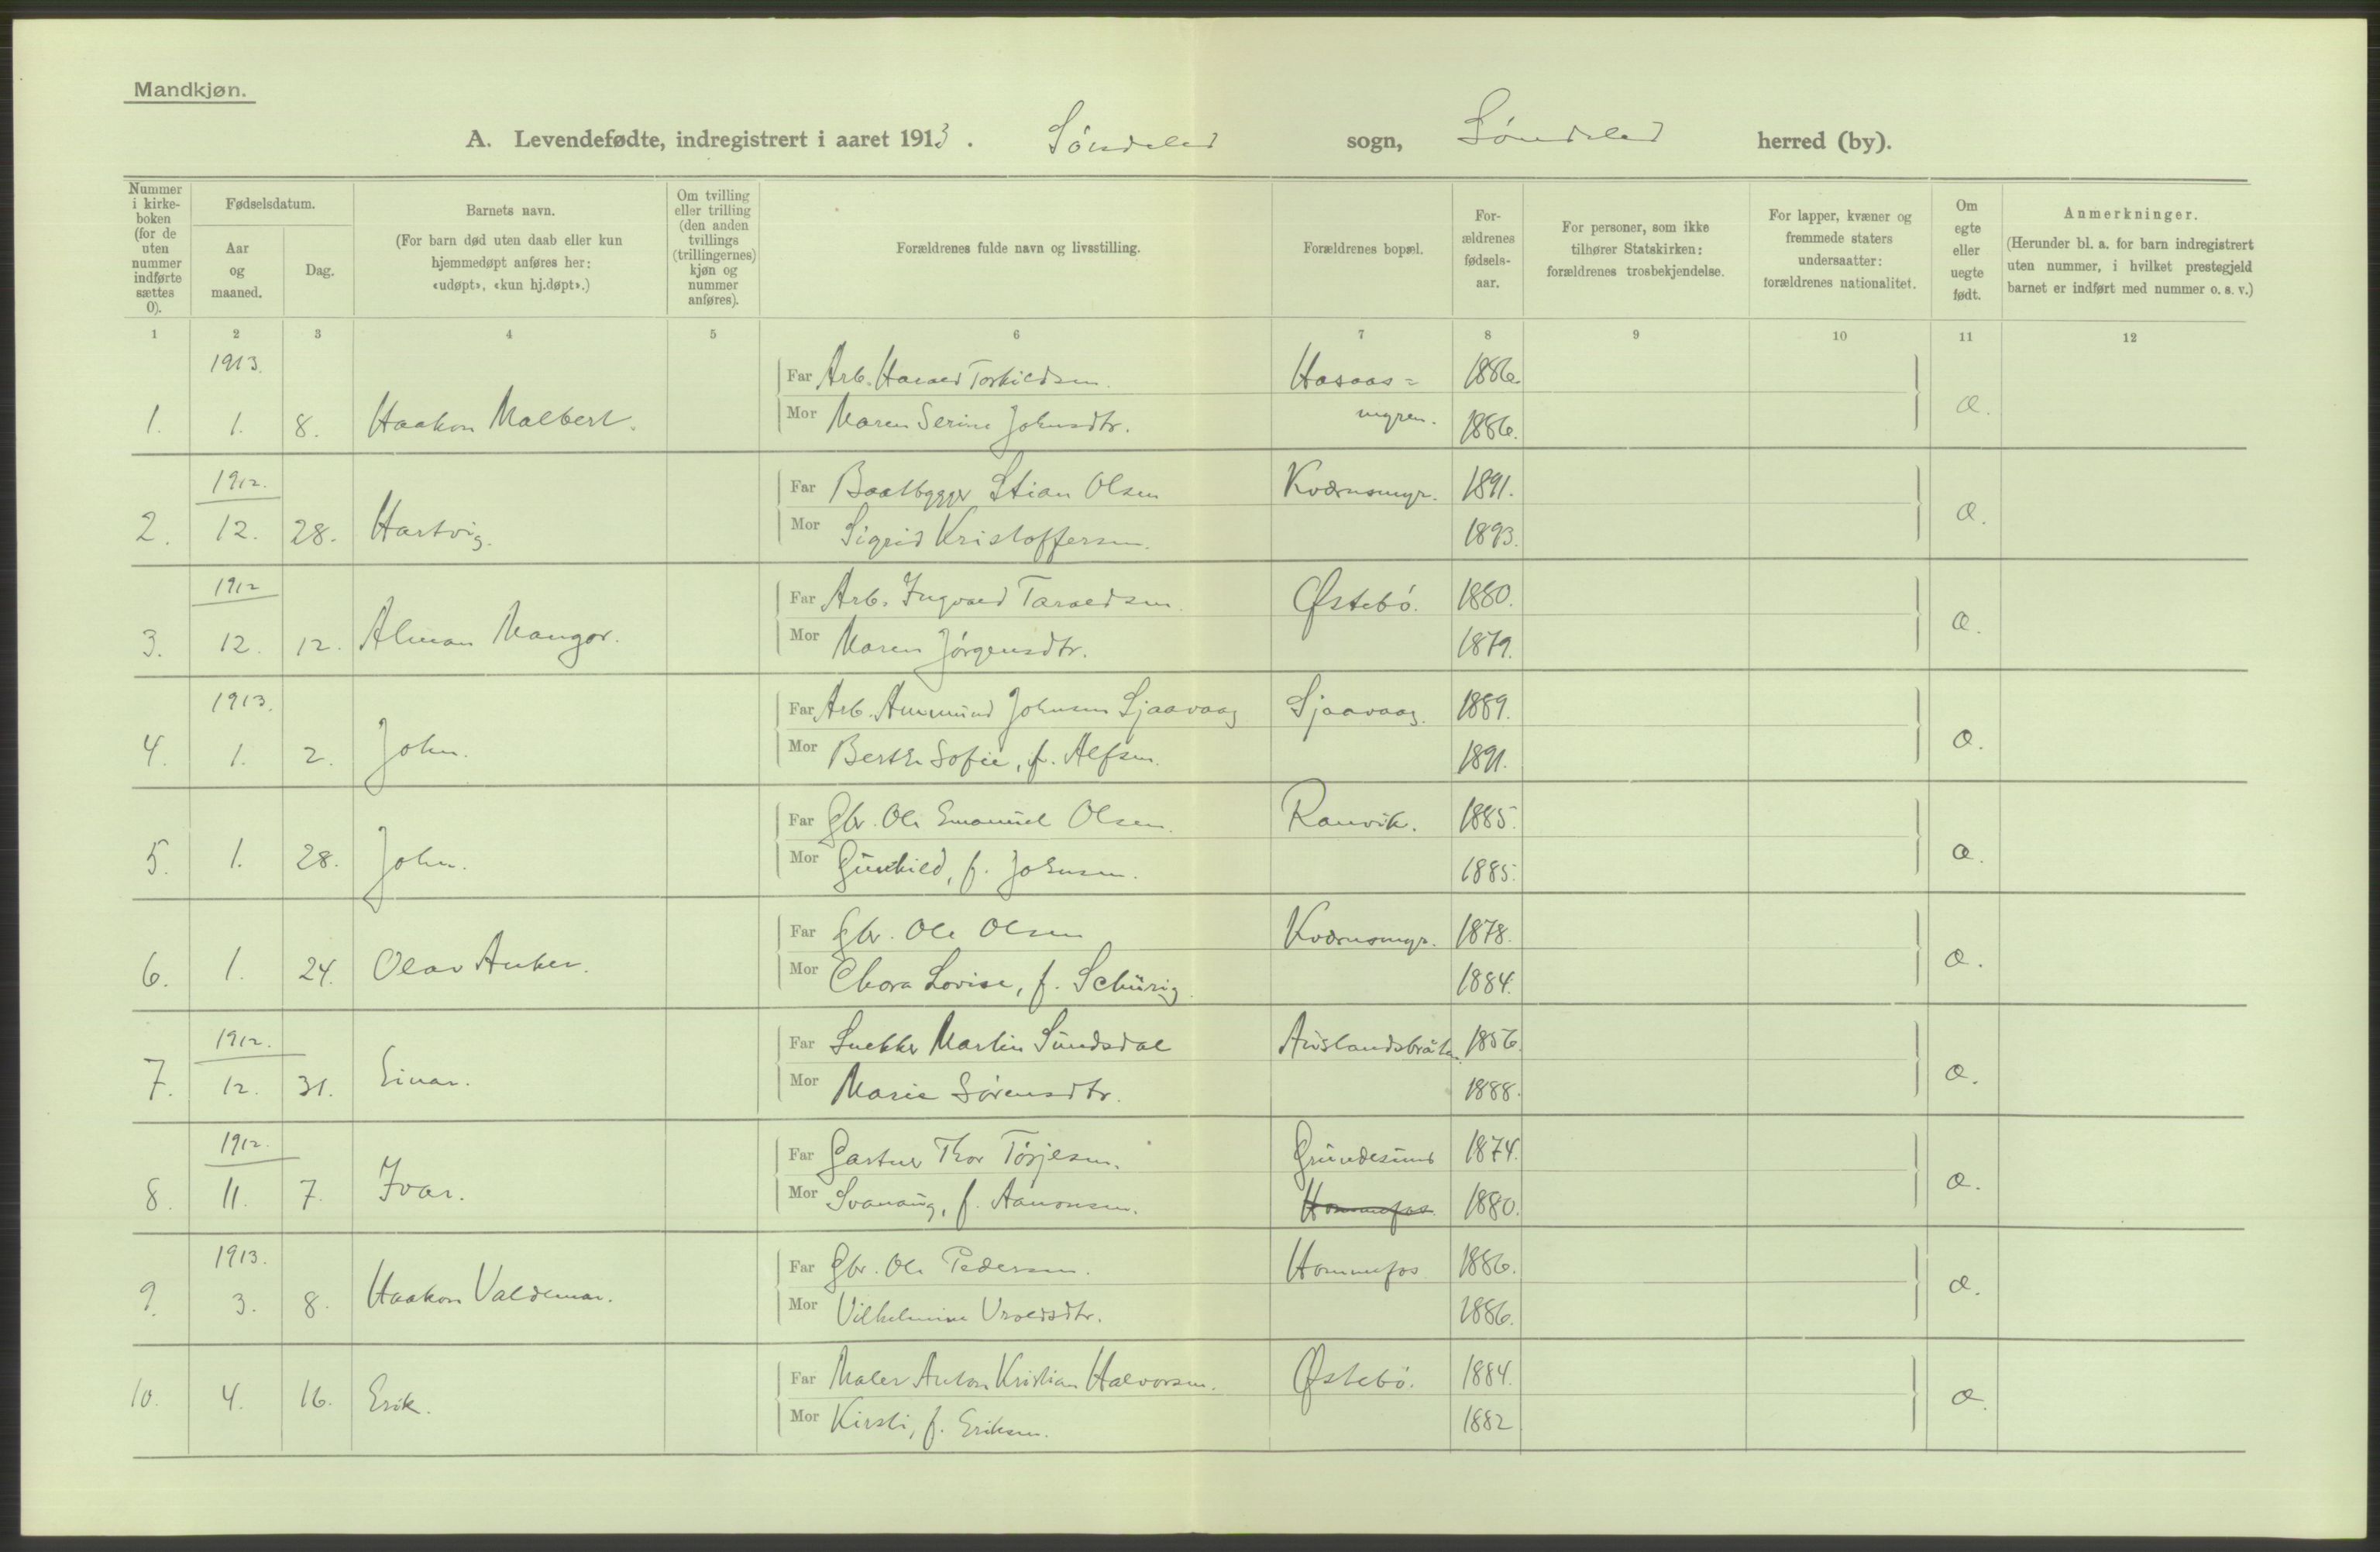 Mandkjøn.
A. Levendefødte, indregistrert i aaret 1913. Søndeled sogn, Søndeled herred (by).
Nummer i kirke-boken (for de uten nummer indførte sættes 0).
Fødselsdatum.
Aar og maaned.
Dag.
Barnets navn.
(For barn død uten daab eller kun hjemmedøpt anføres her: «udøpt», «kun hj.døpt».)
Om tvilling eller trilling (den anden tvillings (trillingernes) kjøn og nummer anføres).
Forældrenes fulde navn og livsstilling.
Forældrenes bopæl.
For-ældrenes fødsels-aar.
For personer, som ikke tilhører Statskirken: forældrenes trosbekjendelse.
For lapper, kvæner og fremmede staters undersaatter: forældrenes nationalitet.
Om egte eller uegte født.
Anmerkninger.
(Herunder bl. a. for barn indregistrert uten nummer, i hvilket prestegjeld barnet er indført med nummer o. s. v.)
1 2 3 4 5 6 7 8 9 10 11 12
1913. Far Arb. Harald Torkildsen. Hasaas= 1886.
1. 1. 8. Haakon Malbert. Mor Maren Serine Johnsdtr. myren. 1886. æ.
1912. Far Baatbygger Stian Olsen Kværnsmyr. 1891.
2. 12. 28. Hartvig. Mor Sigrid Kristoffersen. 1893. æ.
1912 Far Arb. Ingvald Taraldsen. Østebø. 1880.
3. 12. 12. Alman Mangor. Mor Maren Jørgensdtr. 1879. æ.
1913. Far Arb. Ammund Johnsen Sjaavaag Sjaavaag. 1889.
4. 1. 2. John. Mor Berthe Sofie, f. Alfsen. 1891. æ.
Far Gbr. Ole Emanuel Olsen. Ranvik. 1885.
5. 1. 28. John. Mor Gunhild, f. Johnsen. 1885. æ.
Far Gbr. Ole Olsen Kværnsmyr. 1878.
6. 1. 24. Olav Anker. Mor Thora Lovise, f. Schürig. 1884. æ.
1912. Far Snekker Martin Sundsdal 1856.
7. 12. 31. Einar. Mor Marie Sørensdtr. 1888. æ.
1912. Far Gartner Thor Tørjesen. Grundesund 1874.
8. 11. 7. Ivar. Mor Svanaug, f. Aanonsen. Hommefos 1880. æ.
1913. Far Gbr. Ole Pedersen. Hommefos 1886.
9. 3. 8. Haakon Valdemar. Mor Vilhelmine Uvoldsdtr. 1886. æ.
Far Maler Anton Kristian Halvorsen. Østebø. 1884.
10. 4. 16. Erik. Mor Kirsti, f. Eriksen. 1882 æ.